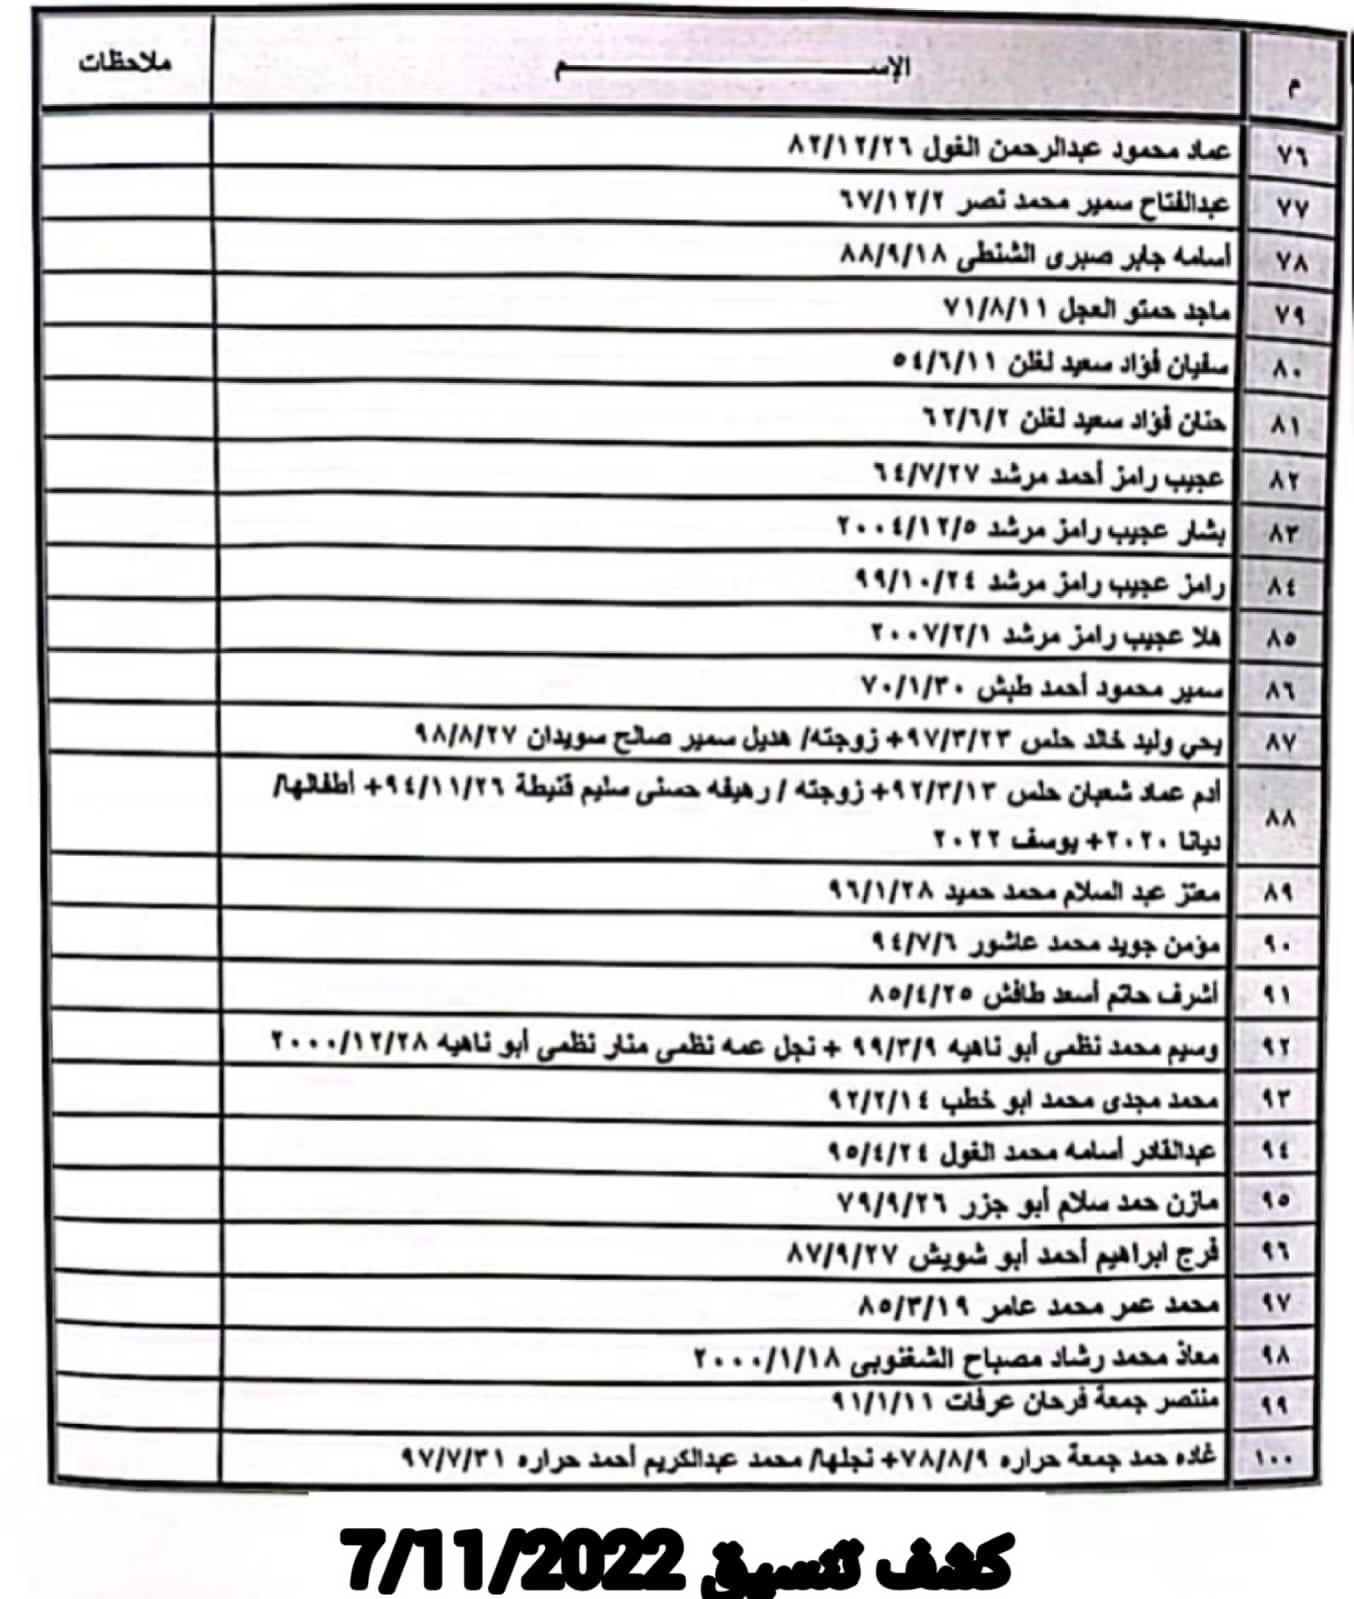 م الإســـــــــــــــــــــم ملاحظات
٧٦ عماد محمود عبدالرحمن الغول ٨٢/١٢/٢٦
٧٧ عبدالفتاح سمير محمد نصر ٦٧/١٢/٢
٧٨ أسامه جابر صبرى الشنطى ٨٨/٩/١٨
٧٩ ماجد حمتو العجل ٧١/٨/١١
٨٠ سفيان فؤاد سعيد لغلن ٥٤/٦/١١
٨١ حنان فؤاد سعيد لغلن ٦٢/٦/٢
٨٢ عجيب رامز أحمد مرشد ٦٤/٧/٢٧
٨٣ بشار عجيب رامز مرشد ٢٠٠٤/١٢/٥
٨٤ رامز عجيب رامز مرشد ٩٩/١٠/٢٤
٨٥ هلا عجيب رامز مرشد ٢٠٠٧/٢/١
٨٦ سمير محمود أحمد طبش ٧٠/١/٣٠
٨٧ يحي وليد خالد حلس ٩٧/٣/٢٣+ زوجته/ هديل سمير صالح سويدان ٩٨/٨/٢٧
٨٨ أدم عماد شعبان حلس ٩٢/٣/١٣+ زوجته / رهيفه حسنى سليم قنيطة ٩٤/١١/٢٦+ أطفالها/
ديانا ٢٠٢٠+ يوسف ٢٠٢٢
٨٩ معتز عبد السلام محمد حميد ٩٦/١/٢٨
٩٠ مؤمن جويد محمد عاشور ٩٤/٧/٦
٩١ أشرف حاتم أسعد طافش ٨٥/٤/٢٥
٩٢ وسيم محمد نظمى أبو ناهيه ٩٩/٣/٩ + نجل عمه نظمى منار نظمى أبو ناهيه ٢٠٠٠/١٢/٢٨
٩٣ محمد مجدى محمد ابو خطب ٩٢/٢/١٤
٩٤ عبدالقادر أسامه محمد الغول ٩٥/٤/٢٤
٩٥ مازن حمد سلام أبو جزر ٧٩/٩/٢٦
٩٦ فرج ابراهيم أحمد أبو شويش ٨٧/٩/٢٧
٩٧ محمد عمر محمد عامر ٨٥/٣/١٩
٩٨ معاذ محمد رشاد مصباح الشغنوبى ٢٠٠٠/١/١٨
٩٩ منتصر جمعة فرحان عرفات ٩١/١/١١
١٠٠ غاده حمد جمعة حراره ٧٨/٨/٩+ نجلها/ محمد عبدالكريم أحمد حراره ٩٧/٧/٣١
كشف تنسيق 7/11/2022